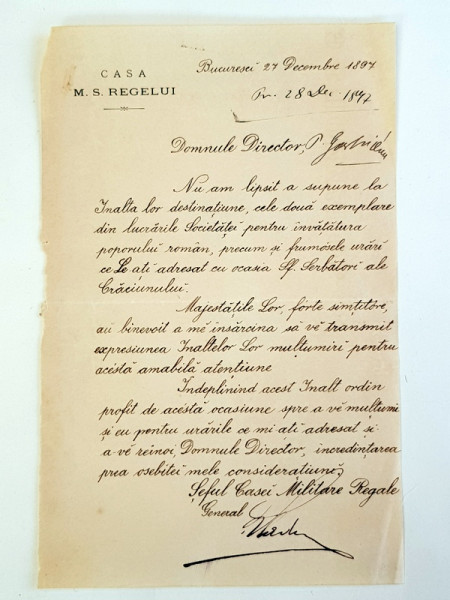 CASA
M. S. REGELUI
Bucuresci 27 Decembre 1897
Pr. 28 Dec 1897
Domnule Director, P.
Nu am lipsit a supune la
Inalta lor destinațiune, cele două exemplare
din lucrările Societăței pentru învătătura
poporului român, precum și frumósele urări
ce Le ați adresat cu ocasia Sf. Serbători ale
Crăciunului.
Majestățile Lor, forte simțitóre,
au binevoit a mĕ însărcina să vĕ transmit
expresiunea Inaltelor Lor multumiri pentru
acéstă amabilă atențiune
Indeplinind acest Inalt ordin
profit de acéstă ocasiune spre a vĕ mulțumi
și eu pentru urările ce mi ati adresat si
a vĕ reinoi, Domnule Director, incredințarea
prea osebitei mele consideratiuni,
Șeful Casei Militare Regale
General